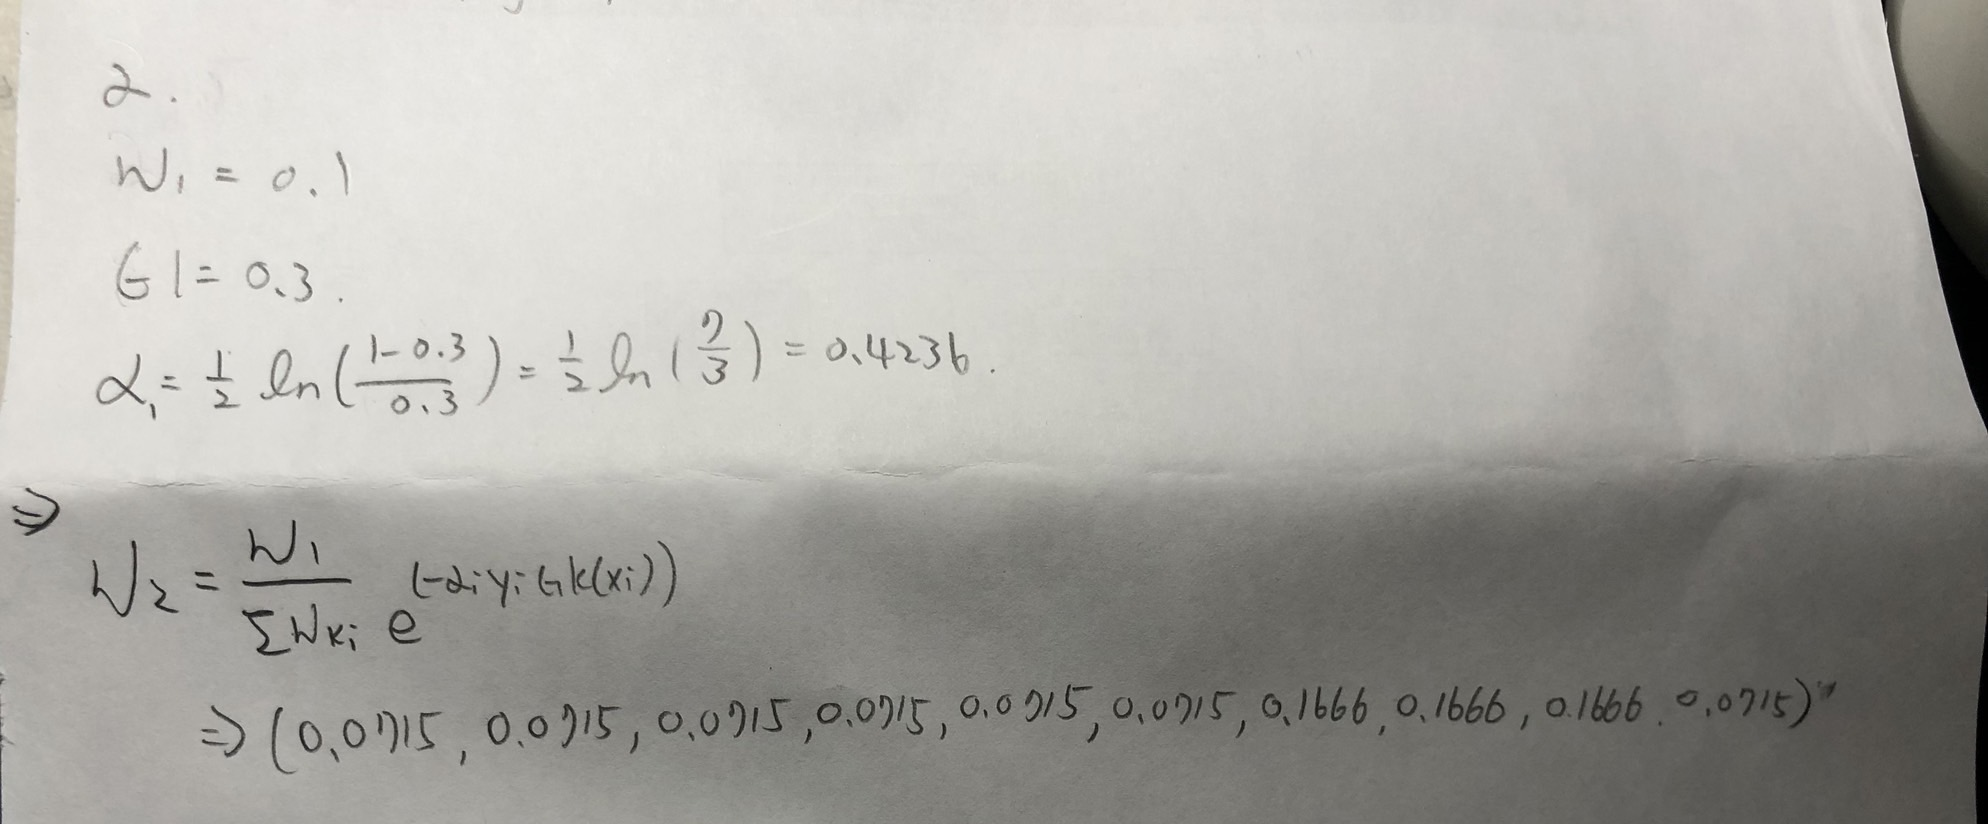 2.
W₁ = 0.1
G1 = 0.3.
α₁ = 1/2 ln((1-0.3)/0.3) = 1/2 ln(7/3) = 0.4236.
⇒
W₂ = W₁/ΣWₖᵢ e^(-αᵢyᵢGk(xᵢ))
⇒ (0.0715, 0.0715, 0.0715, 0.0715, 0.0715, 0.0715, 0.1666, 0.1666, 0.1666, 0.0715)